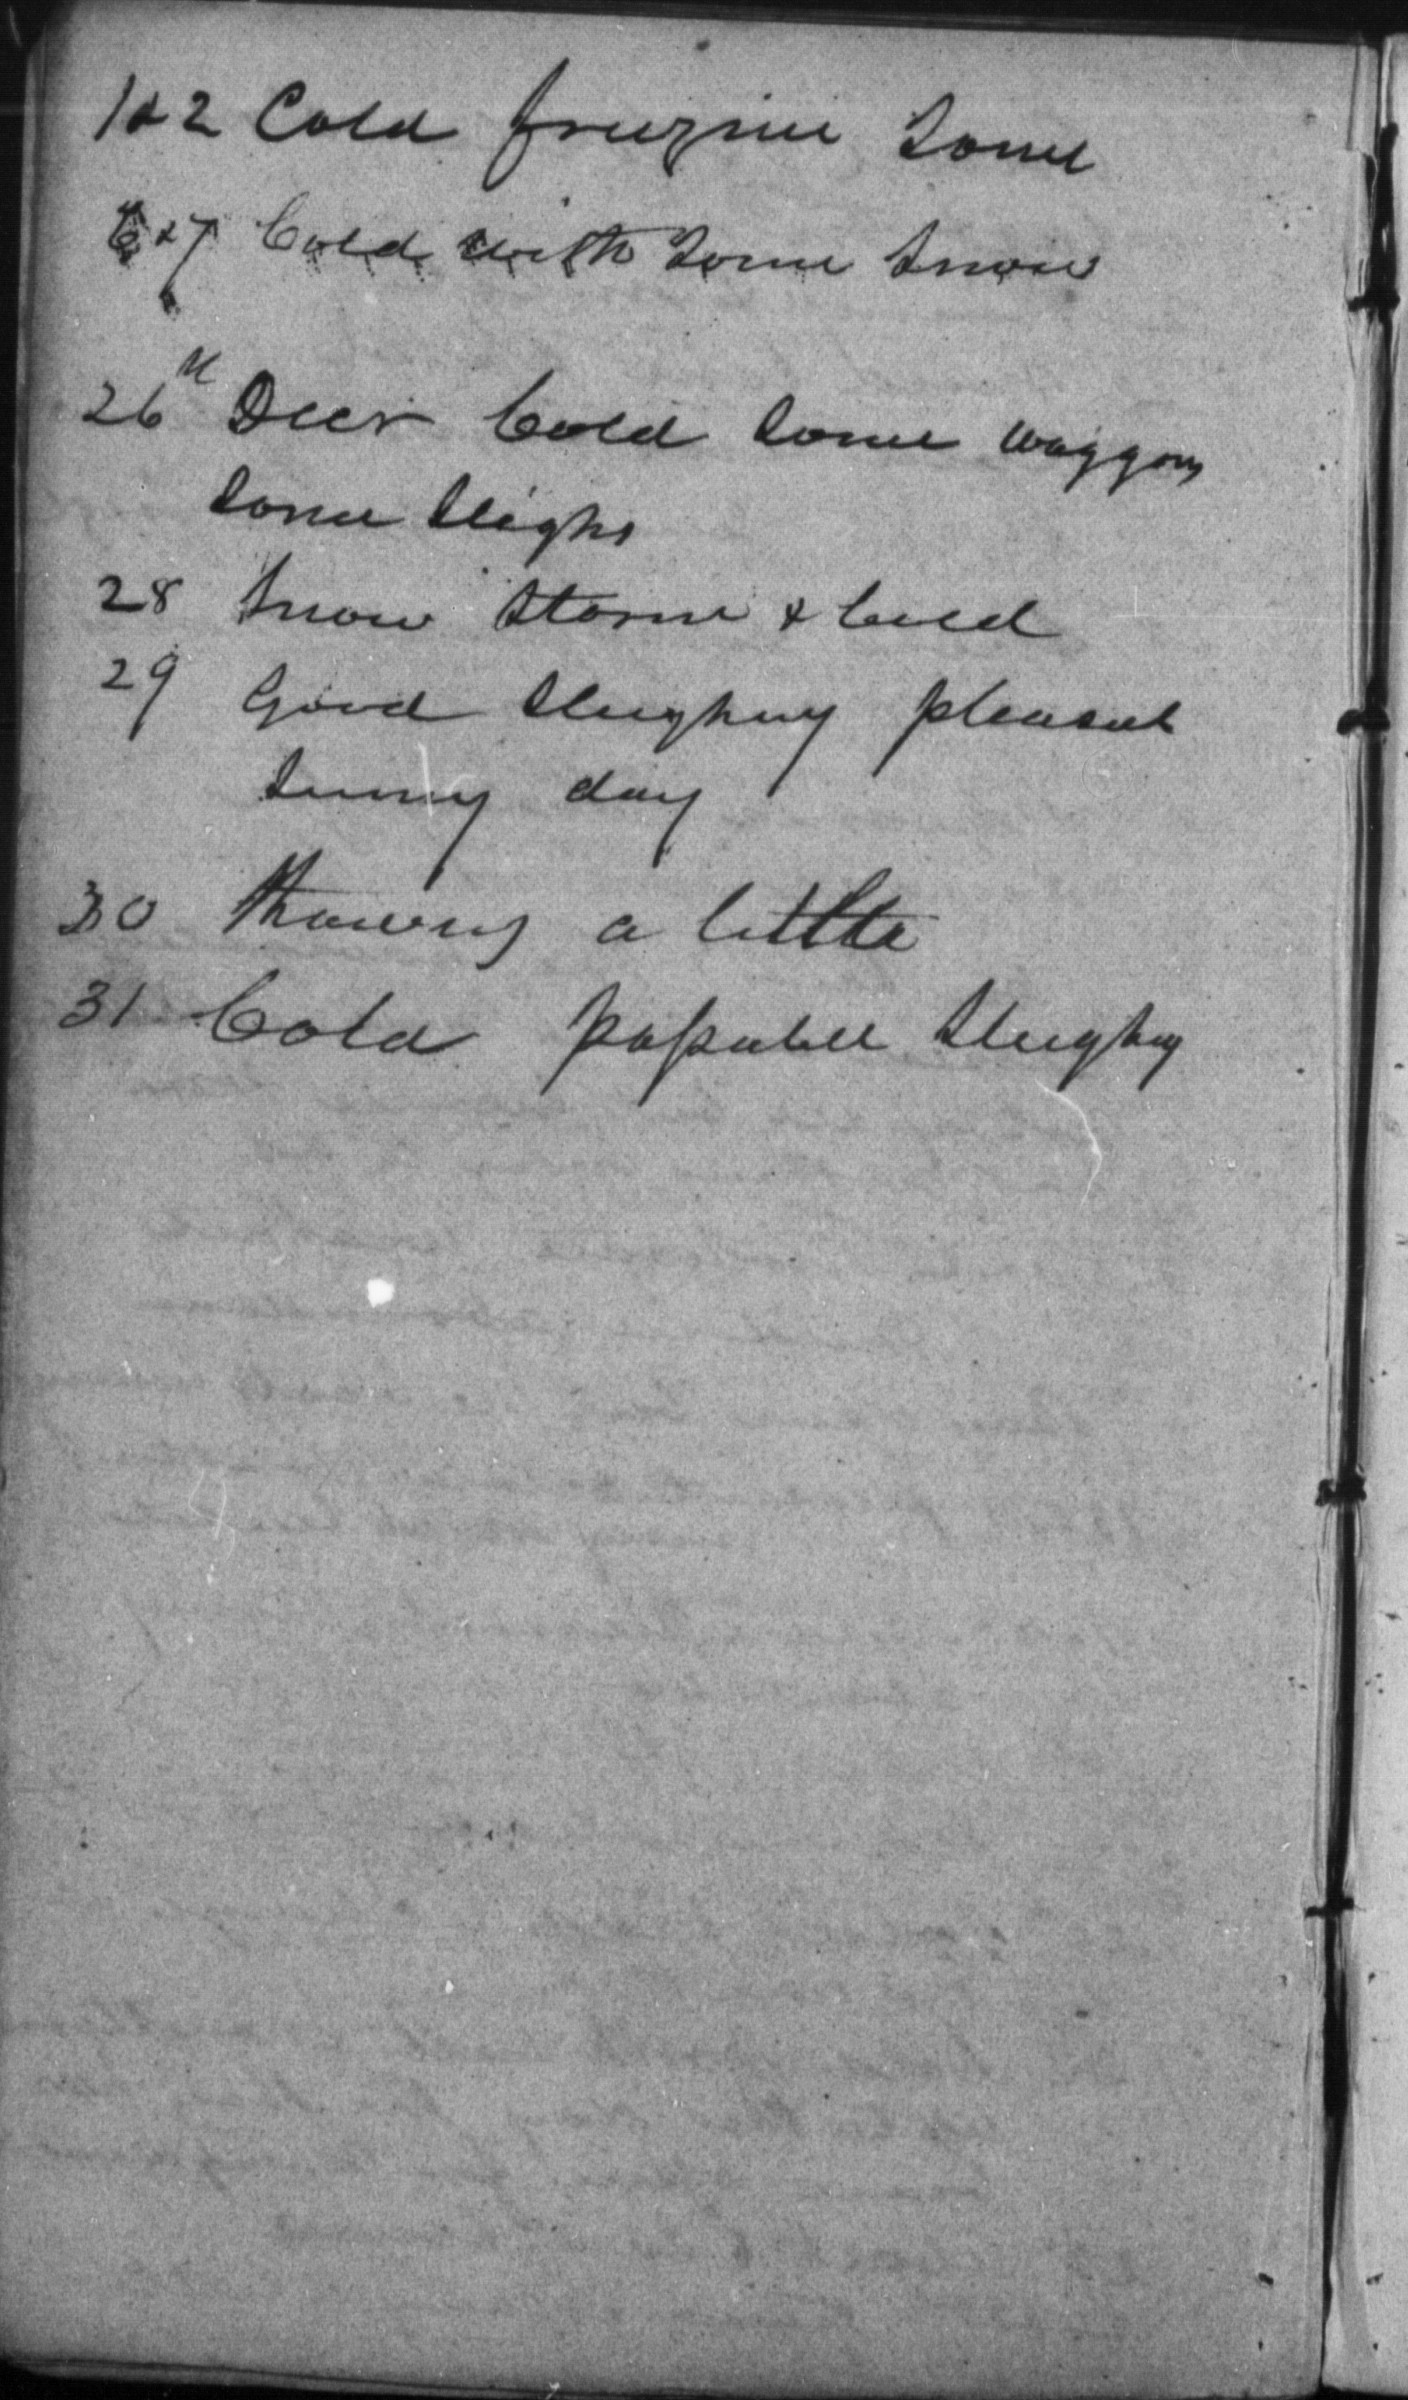 1 & 2 Cold freezine some
6 & 7 Cold with some snow
26th Decr Cold some waggons
some sleighs
28 snow storm & Cold
29 Good sleighing pleasant
sunny day
30 thawing a little
31 Cold passabel sleighing